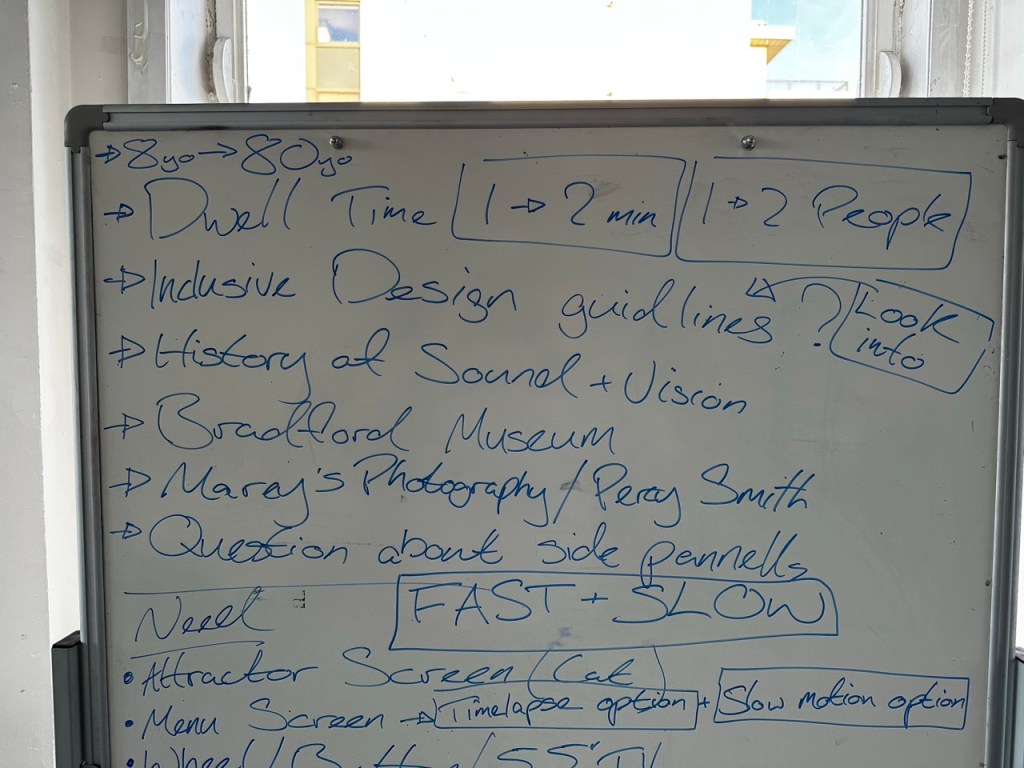 → 8yo → 80yo
→ Dwell Time 1 → 2 min 1 → 2 People
→ Inclusive Design guidlines ? Look into
→ History of Sound + Vision
→ Bradford Museum
→ Marey's Photography / Percy Smith
→ Question about side pannells
Need FAST + SLOW
• Attractor Screen (Cat)
• Menu Screen → Timelapse option + Slow motion option
• Wheel / Button / 55" TV